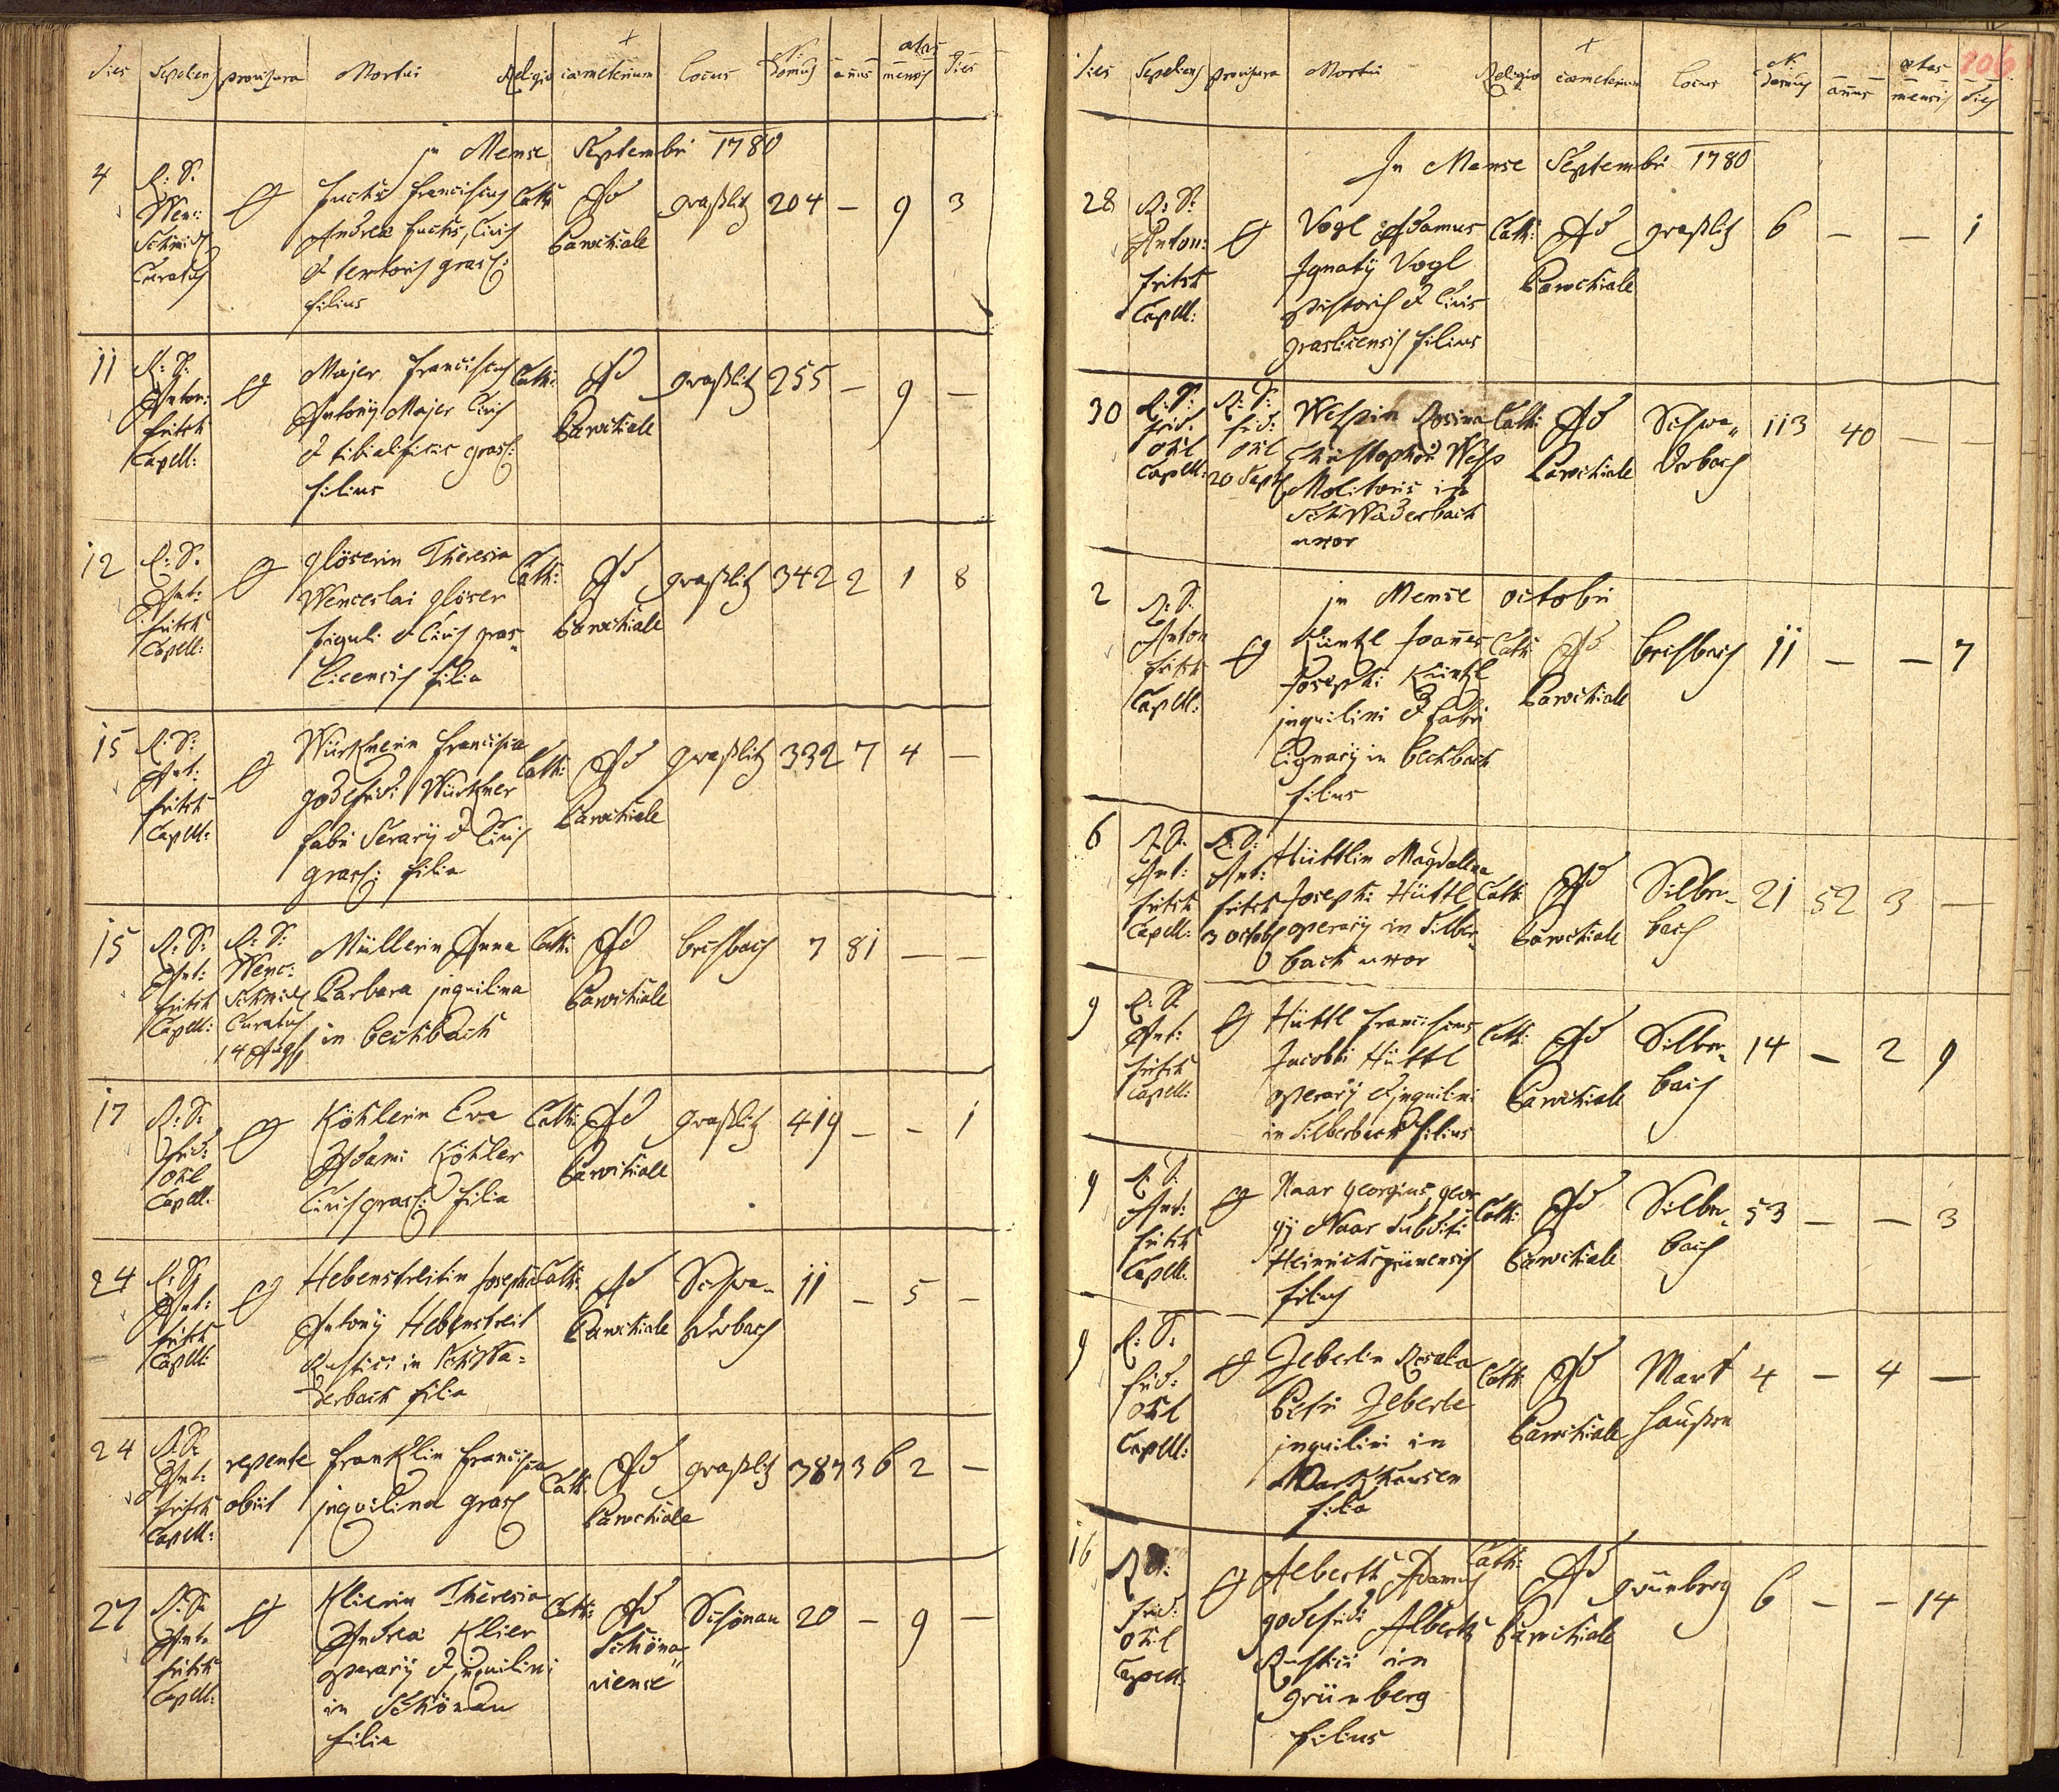 Dies Sepeliens provisura Mortui Religio cœmeterium Locus N: Domus annus ætas mensis Dies
in Mense Septembri 1780
4 R: D: Wenc: Schmidt Curatus
Fuchs Franciscus
Andreæ Fuchs, Civis
& textoris grasl:
filius
Cath: Ad Parochiale graßlitz 204 — 9 3
11 R: D: Anton: Fritsch Capell:
Majer Franciscus
Antonij Majer Civis
& tibialificis grasl:
filius
Cath: Ad Parochiale graßlitz 255 — 9 —
12 R: D: Ant: Fritsch Capell:
Glöserin Theresia
Wenceslai glöser
figuli & Civis gras„
licensis filia
Cath: Ad Parochiale graßlitz 342 2 1 8
15 R: D: Ant: Fritsch Capell:
Würtznerin Francisca
godefridi Würtzner
fabri Serarij & Civis
grasl: filia
Cath: Ad Parochiale graßlitz 332 7 4 —
15 R: D: Ant: Fritsch Capell:
R: D: Wenc: Schmidt Curatus 14 Aug
Müllerin Anna
Barbara inquilina
in Bechbach
Cath: Ad Parochiale 7 81 — —
17 R: D: Frid: Ohl Capell:
Köhlerin Eva
Adami Köhler
Civis grasl: filia
Cath: Ad Parochiale graßlitz 419 — — 1
24 R: D: Ant: Fritsch Capell:
Hebenstreitin Josepha
Antonij Hebenstreit
Rustici in Schwa=
derbach filia
Cath: Ad Parochiale Schwa- derbach 11 — 5 —
24 R: D: Ant: Fritsch Capell:
repente obiit
Franklin Francisca
inquilina grasl
Cath: Ad Parochiale graßlitz 387 36 2 —
27 R: D: Ant: Fritsch Capell:
Klierin Theresia
Andreæ Klier
operarij & inquilini
in Schönau
filia
Cath: Ad Schöna„ viense Schönau 20 — 9 —
106
Dies Sepeliens provisura Mortui Religio cœmeterium Locus N: Domus annus ætas mensis Dies
In Mense Septembri 1780
28 R: D: Anton: Fritsch Capell:
Vogl Adamus
Ignatij Vogl
pistoris & Civis
graslicensis filius
Cath: Ad Parochiale graßlitz 6 — — 1
30 R: D: Frid: Ohl Capell:
R: D: Frid: Ohl 20 Sept
Rosina
Christophori
Molitoris in
Schwaderbach
uxor
Cath: Ad Parochiale Schwa„ derbach 113 40 — —
in Mense octobri
2 R: D: Anton Fritsch Capell:
Küntzl Joannes
Josephi Küntzl
inquilini & fabri
lignarij in Bechbach
filius
Cath: Ad Parochiale 11 — — 7
6 R: D: Ant: Fritsch Capell:
R: D: Ant: Fritsch 3 octob
Hüttlin Magdalena
Josephi Hüttl
operarij in Silber„
bach uxor
Cath: Ad Parochiale Silber- bach 21 52 3 —
9 R: D: Ant: Fritsch Capell:
Hüttl Franciscus
Jacobi Hüttl
operarij & inquilini
in Silberbach filius
Cath: Ad Parochiale Silber- bach 14 — 2 9
9 R: D: Ant: Fritsch Capell:
Naar Georgius, Geor
gij Naar Subditi
Heinrichsgrünensis
filius
Cath: Ad Parochiale Silber- bach 53 — — 3
9 R: D: Frid: Ohl Capell:
Zeberlin Rosalia
Petri Zeberle
inquilini in
Markhausen
filia
Cath: Ad Parochiale Mark haußen 4 — 4 —
16 R: D: Frid: Ohl Capell:
Alberth Adamus
godefridi Alberth
Rustici in
grünberg
filius
Cath: Ad Parochiale grünberg 6 — — 14